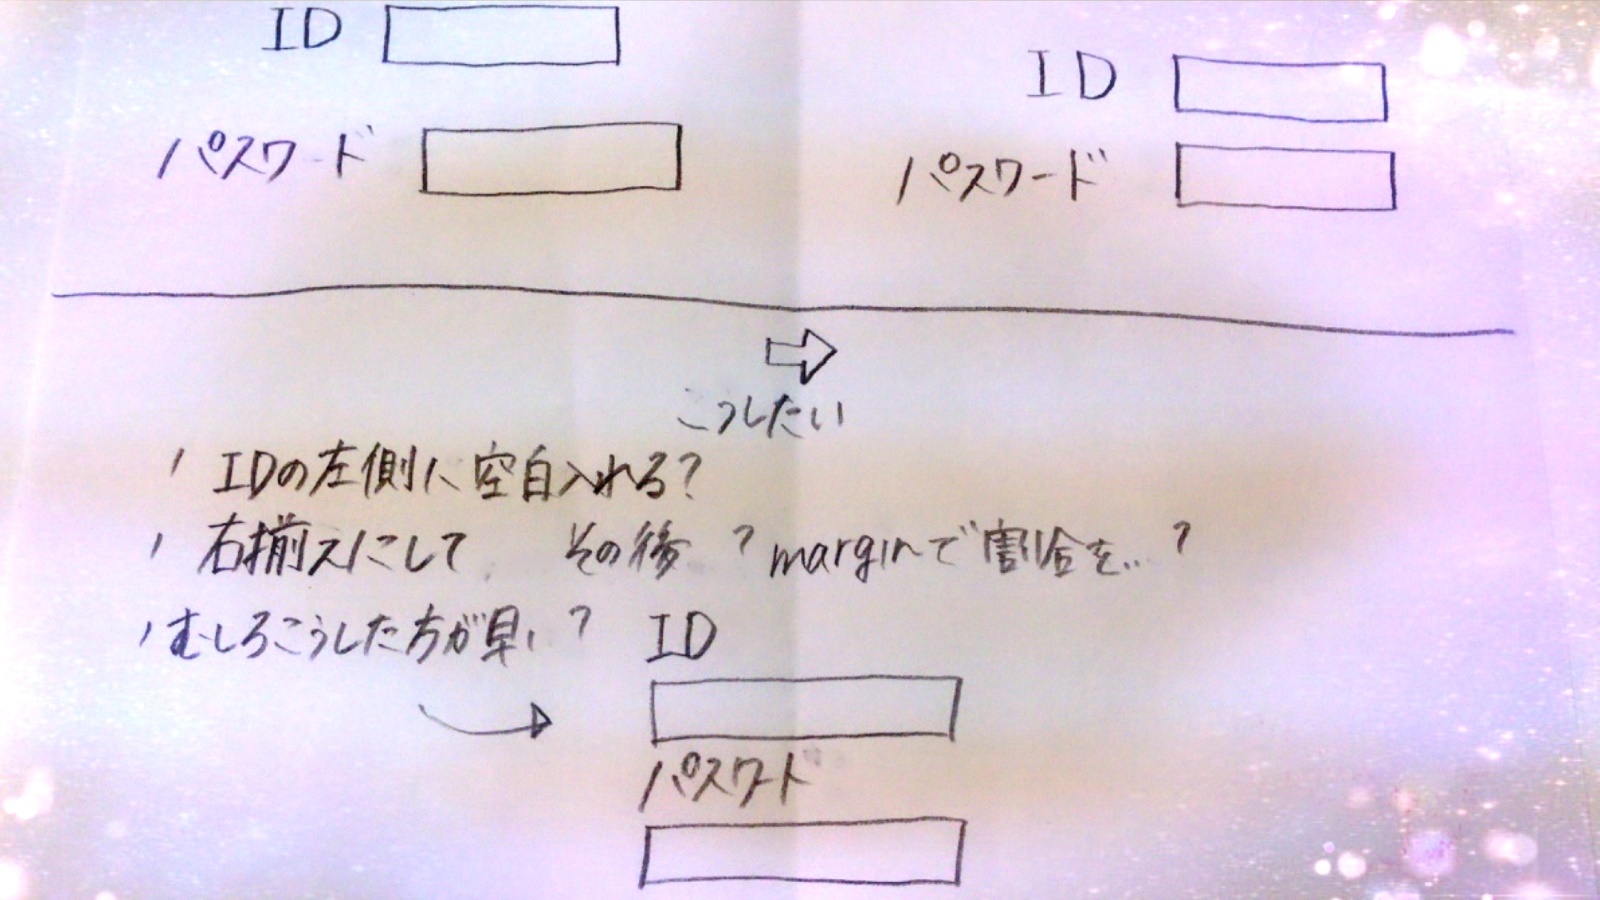 ID
パスワード
ID
パスワード
こうしたい
IDの左側に空白入れる?
右揃えにして その後 ? marginで割合を…?
むしろこうした方が早い? ID
パスワード